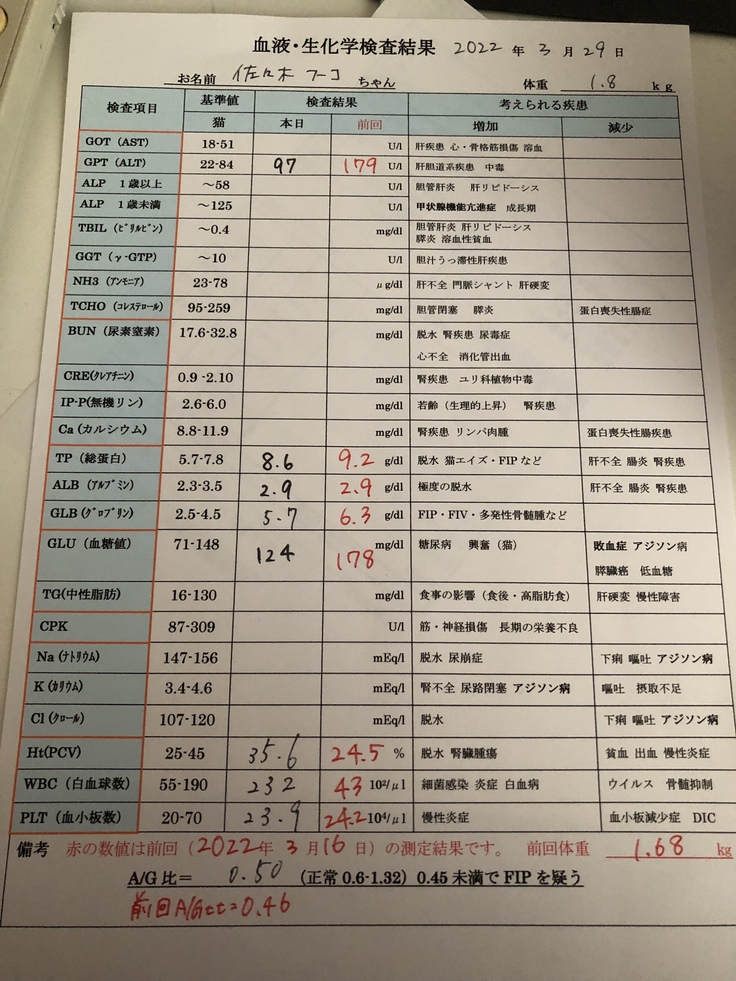 血液・生化学検査結果 2022 年 3 月 29 日
お名前 佐々木 フーコ ちゃん 体重 1.8 kg
検査項目 基準値 検査結果 考えられる疾患
猫 本日 前回 増加 減少
GOT (AST) 18-51 U/l 肝疾患 心・骨格筋損傷 溶血
GPT (ALT) 22-84 97 179 U/l 肝胆道系疾患 中毒
ALP 1歳以上 ～58 U/l 胆管肝炎 肝リピドーシス
ALP 1歳未満 ～125 U/l 甲状腺機能亢進症 成長期
TBIL (ﾋﾞﾘﾙﾋﾞﾝ) ～0.4 mg/dl 胆管肝炎 肝リピドーシス
膵炎 溶血性貧血
GGT (γ-GTP) ～10 U/l 胆汁うっ滞性肝疾患
NH3 (ｱﾝﾓﾆｱ) 23-78 μg/dl 肝不全 門脈シャント 肝硬変
TCHO (ｺﾚｽﾃﾛｰﾙ) 95-259 mg/dl 胆管閉塞 膵炎 蛋白喪失性腸症
BUN (尿素窒素) 17.6-32.8 mg/dl 脱水 腎疾患 尿毒症
心不全 消化管出血
CRE(ｸﾚｱﾁﾆﾝ) 0.9 -2.10 mg/dl 腎疾患 ユリ科植物中毒
IP-P(無機リン) 2.6-6.0 mg/dl 若齢（生理的上昇） 腎疾患
Ca (カルシウム) 8.8-11.9 mg/dl 腎疾患 リンパ肉腫 蛋白喪失性腸疾患
TP (総蛋白) 5.7-7.8 8.6 9.2 g/dl 脱水 猫エイズ・FIP など 肝不全 腸炎 腎疾患
ALB (ｱﾙﾌﾞﾐﾝ) 2.3-3.5 2.9 2.9 g/dl 極度の脱水 肝不全 腸炎 腎疾患
GLB (ｸﾞﾛﾌﾞﾘﾝ) 2.5-4.5 5.7 6.3 g/dl FIP・FIV・多発性骨髄腫など
GLU (血糖値) 71-148 124 178 mg/dl 糖尿病 興奮（猫） 敗血症 アジソン病
膵臓癌 低血糖
TG(中性脂肪) 16-130 mg/dl 食事の影響（食後・高脂肪食） 肝硬変 慢性障害
CPK 87-309 U/l 筋・神経損傷 長期の栄養不良
Na (ﾅﾄﾘｳﾑ) 147-156 mEq/l 脱水 尿崩症 下痢 嘔吐 アジソン病
K (ｶﾘｳﾑ) 3.4-4.6 mEq/l 腎不全 尿路閉塞 アジソン病 嘔吐 摂取不足
Cl (ｸﾛｰﾙ) 107-120 mEq/l 脱水 下痢 嘔吐 アジソン病
Ht(PCV) 25-45 35.6 24.5 % 脱水 腎臓腫瘍 貧血 出血 慢性炎症
WBC (白血球数) 55-190 232 43 10²/μl 細菌感染 炎症 白血病 ウイルス 骨髄抑制
PLT (血小板数) 20-70 23.9 24.2 10⁴/μl 慢性炎症 血小板減少症 DIC
備考 赤の数値は前回（2022年 3月16日）の測定結果です。 前回体重 1.68 kg
A/G 比＝ 0.50 （正常 0.6-1.32）0.45 未満で FIP を疑う
前回A/G比=0.46